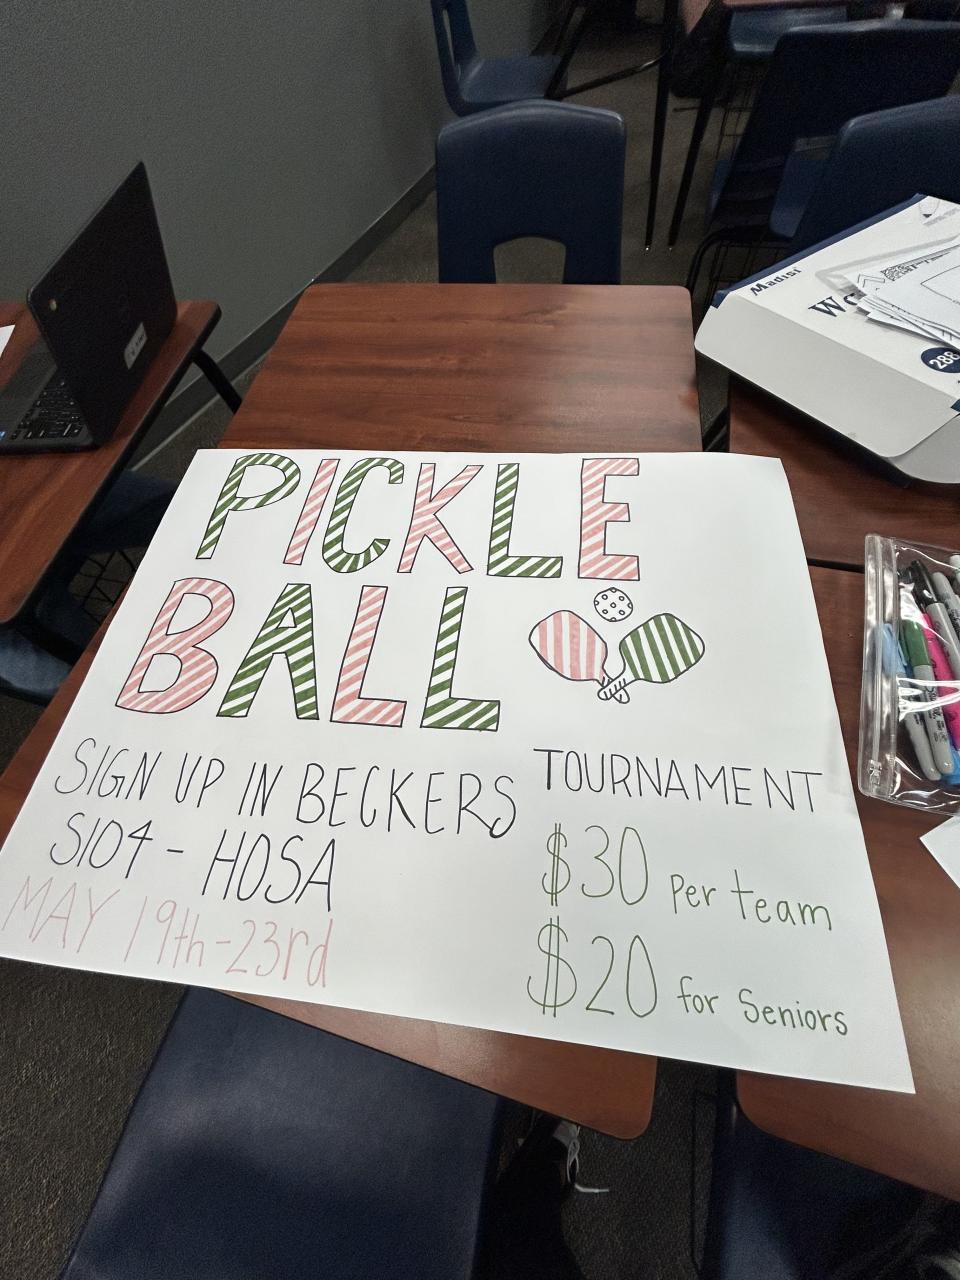 PICKLE
BALL
SIGN UP IN BECKERS
S104 - HOSA
MAY 19th-23rd
TOURNAMENT
$30 per team
$20 for Seniors
Madisi
288